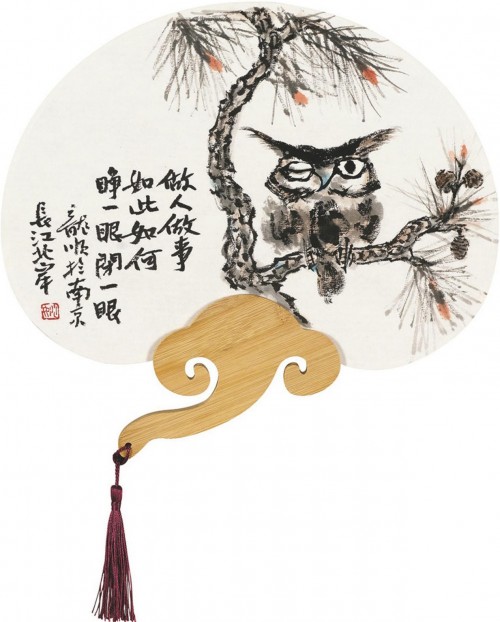 做人做事
如此如何
睁一眼闭一眼
龍順於南京
長江北岸